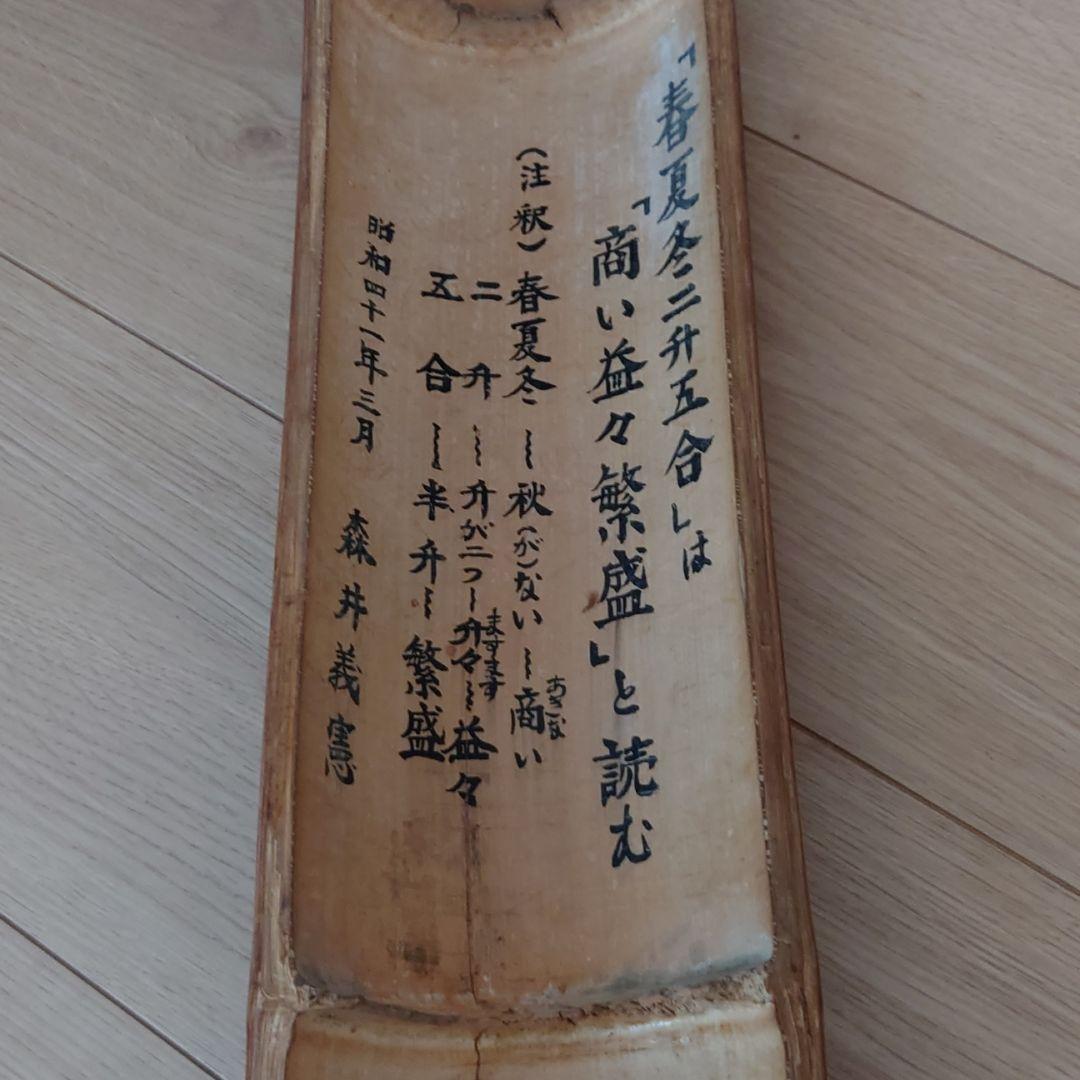 「春夏冬二升五合」は
「商い益々繁盛」と読む
(注釈)春夏冬〜秋(が)ない〜商い
あきな
二升〜升が二つ〜升々〜益々
ますます
五合〜半升〜繁盛
昭和四十一年三月 森井義憲